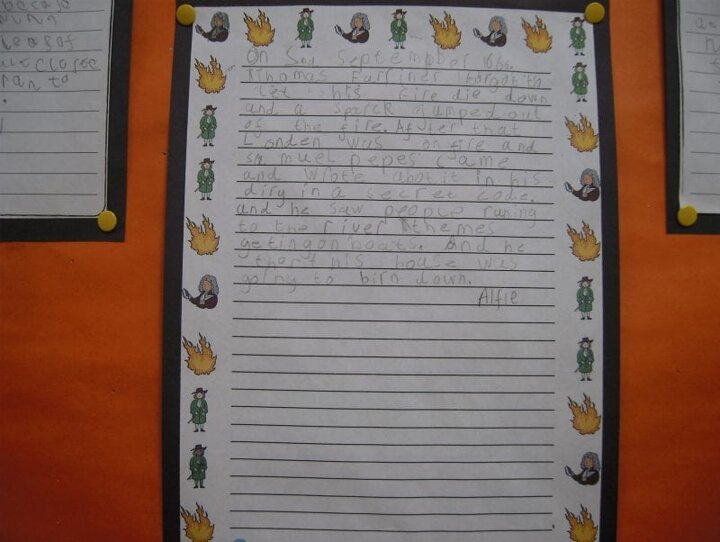 On 2nd September 1666.
Thomas Farriner forgot to
let his fire die down
and a sparck jumped out
of the fire. After that
London was on fire and
samuel pepes came
and wrote about it in his
diry in a secret code.
and he saw people runing
to the river themes
geting on boats. And he
thort his house was
going to birn down.
Alfie